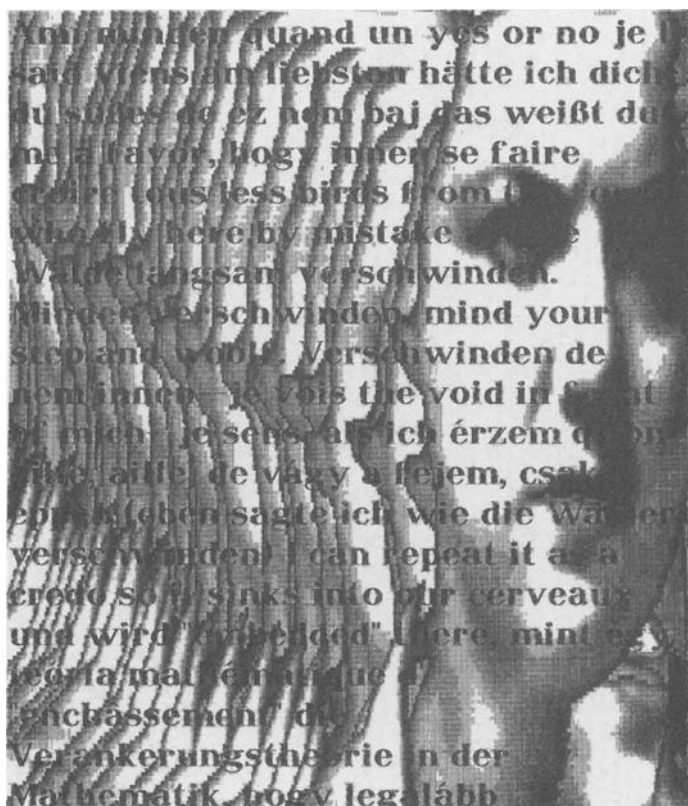 Ami minden quand un yes or no je
said viens am liebsten hätte ich dich
du süßes de ez nem baj das weißt du
me a favor, hogy innen se faire
croire tous less birds from
who fly here by mistake
Wälder langsam verschwinden.
Minden verschwinden, mind your
step and Verschwinden de
nem innen je vois the void in front
of mich je sens als ich érzem
aille, de vágy a fejem, csak
eppen (eben sagte ich wie die Wälder
verschwinden) I can repeat it as a
credo so it sinks into our cerveaux
und wird "embedded" there, mint egy
teória mathématique
"enchassement" die
Verankerungstheorie in der
Mathematik, hogy legalább